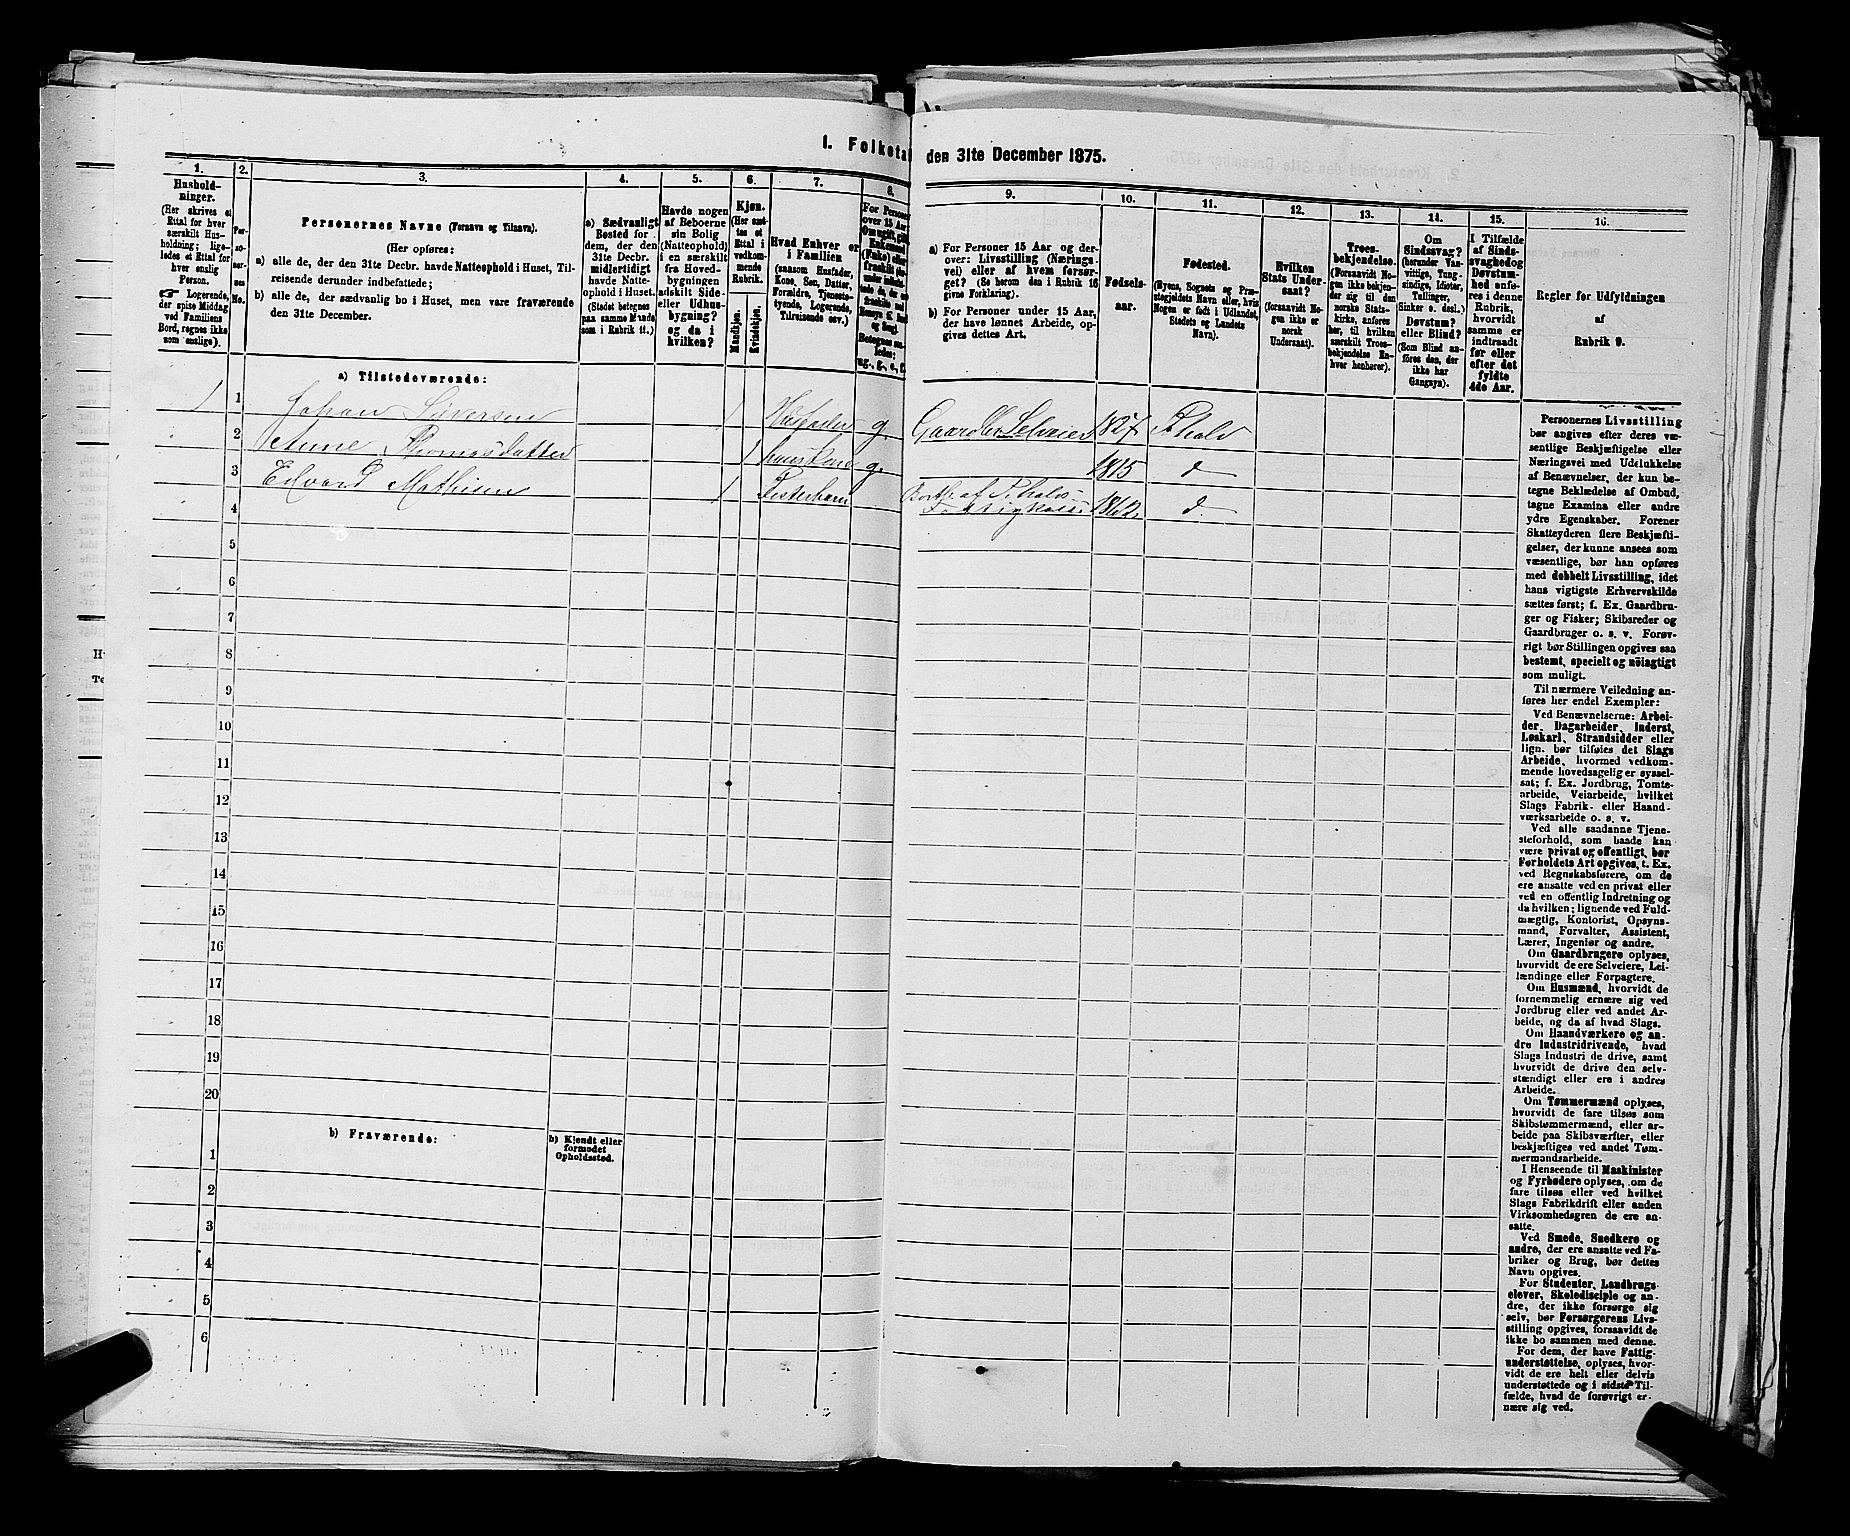 1. Folketal
den 31te December 1875.
1.
2.
3.
4.
5.
6.
7.
8.
Hushold-
ninger.
(Her skrives et
Ettal for hver
særskilt Hus-
holdning; lige-
ledes et Ettal for
hver enslig
Person.
☞ Logerende,
der spise Middag
ved Familiens
Bord, regnes ikke
som enslige).
Per-
so-
ner-
nes
No.
Personernes Navne (Fornavn og Tilnavn).
(Her opføres:
a) alle de, der den 31te Decbr. havde Natteophold i Huset, Til-
reisende derunder indbefattede;
b) alle de, der sædvanlig bo i Huset, men vare fraværende
den 31te December.
a) Sædvanligt
Bosted for
dem, der den
31te Decbr.
midlertidigt
havde Natte-
ophold i Huset.
(Stedet betegnes
paa samme Maade
som i Rubrik 11.)
Havde nogen
af Beboerne
sin Bolig
(Natteophold)
i en særskilt
fra Hoved-
bygningen
adskilt Side-
eller Udhus-
bygning?
og da i
hvilken?
Kjøn.
(Her sæt-
tes et
Ettal i
vedkom-
mende
Rubrik.
Mandkjøn.
Kvindekjøn.
Hvad Enhver er
i Familien
(saasom Husfader,
Kone, Søn, Datter,
Forældre, Tjeneste-
tyende, Logerende,
Tilreisende osv.)
a) Tilstedeværende:
1 1 Johan Siversen 1 Husfader g.
2 Anne Thomasdatter 1 hans Kone g.
3 Edvard Mathisen 1 Fosterbarn
4
5
6
7
8
9
10
11
12
13
14
15
16
17
18
19
20
b) Fraværende:
b) Kjendt eller
formodet
Opholdssted.
1
2
3
4
5
6
9.
10.
11.
12.
13.
14.
15.
16.
a) For Personer 15 Aar og der-
over: Livsstilling (Nærings-
vei) eller af hvem forsør-
get? (Se herom den i Rubrik 16
givne Forklaring).
b) For Personer under 15 Aar,
der have lønnet Arbeide, op-
gives dettes Art.
Fødsels-
aar.
Fødested.
(Byens, Sognets og Præ-
stegjeldets Navn eller, hvis
Nogen er født i Udlandet,
Stedets og Landets
Navn).
Hvilken
Stats Under-
saat?
(forsaavidt No-
gen ikke er
norsk
Undersaat).
Troes-
bekjendelse.
(Forsaavidt No-
gen ikke bekjen-
der sig til den
norske Stats-
kirke, anføres
her, til hvilken
særskilt Troes-
bekjendelse En-
hver henhører).
Om
Sindssvag?
(herunder Van-
vittige, Tung-
sindige, Idioter,
Tullinger,
Sinker o. desl.)
Døvstum?
eller Blind?
(Som Blind an-
føres den, der
ikke har
Gangsyn).
I Tilfælde
af Sinds-
svaghed og
Døvstum-
hed anfø-
res i denne
Rubrik,
hvorvidt
samme er
indtraadt
før eller
efter det
fyldte
4de Aar.
Regler for Udfyldningen
af
Rubrik 9.
Gaardbr Selveier 1827
1815 d
1862 d.
Personernes Livsstilling
bør angives efter deres væ-
sentlige Beskjæftigelse eller
Næringsvei med Udelukkelse
af Benævnelser, der kun be-
tegne Beklædelse af Ombud,
tagne Examina eller andre
ydre Egenskaber. Forener
Skatteyderen flere Beskjæfti-
gelser, der kunne ansees som
væsentlige, bør han opføres
med dobbelt Livsstilling, idet
hans vigtigste Erhvervskilde
sættes først; f. Ex. Gaardbru-
ger og Fisker; Skibsreder og
Gaardbruger o. s. v. Forøv-
rigt bør Stillingen opgives saa
bestemt, specielt og nöiagtigt
som muligt.
Til nærmere Veiledning an-
føres her endel Exempler:
Ved Benævnelserne: Arbei-
der, Dagarbeider, Inderst,
Løskarl, Strandsidder eller
lign. bør tilføies det Slags
Arbeide, hvormed vedkom-
mende hovedsagelig er syssel-
sat; f. Ex. Jordbrug, Tomte-
arbeide, Veiarbeide, hvilket
Slags Fabrik- eller Haand-
værksarbeide o. s. v.
Ved alle saadanne Tjene-
steforhold, som baade kan
være privat og offentligt, bør
Forholdets Art opgives, t. Ex.
ved Regnskabsførere, om de
ere ansatte ved en privat eller
ved en offentlig Indretning og
da hvilken; lignende ved Fuld-
mægtig, Kontorist, Opsyns-
mand, Forvalter, Assistent,
Lærer, Ingeniør og andre.
Om Gaardbrugere oplyses,
hvorvidt de ere Selveiere, Lei-
lændinge eller Forpagtere.
Om Husmænd, hvorvidt de
fornemmelig ernære sig ved
Jordbrug eller ved andet Ar-
beide, og da af hvad Slags.
Om Haandværkere og an-
dre Industridrivende, hvad
Slags Industri de drive, samt
hvorvidt de drive den selv-
stændigt eller ere i andres
Arbeide.
Om Tømmermænd oplyses,
hvorvidt de fare tilsøs som
Skibstømmermænd, eller ar-
beide paa Skibsværfter, eller
beskjæftiges ved andet Tøm-
mermandsarbeide.
I Henseende til Maskinister
og Fyrbødere oplyses, om de
fare tilsøs eller ved hvilket
Slags Fabrikdrift eller anden
Virksomhedsgren de ere an-
satte.
Ved Smede, Snedkere og
andre, der ere ansatte ved Fa-
briker og Brug, bør dettes
Navn opgives.
For Studenter, Landbrugs-
elever, Skoledisciple og an-
dre, der ikke forsørge sig
selv, bør Forsørgerens Livs-
stilling opgives, forsaavidt de
ikke bo sammen med denne.
For dem, der have Fattig-
understøttelse, oplyses, hvor-
vidt de ere helt eller delvis
understøttede og i sidste Til-
fælde, hvad de forøvrigt er-
nære sig ved.